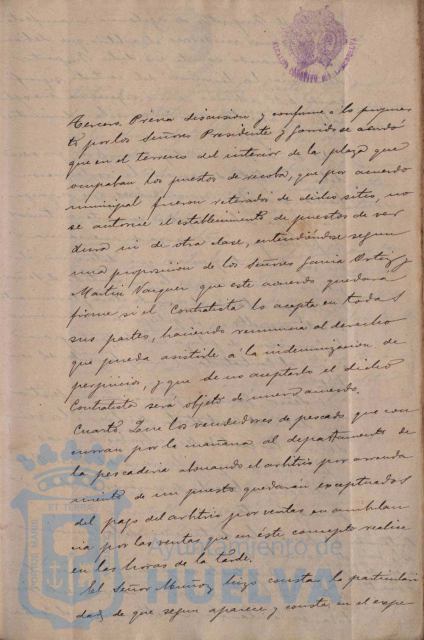 Tercero. Previa discusion y conforme a lo propues
to por los Señores Presidente y Garrido se acordó
que en el terreno del interior de la plaza que
ocupaban los puestos de recoba, que por acuerdo
municipal fueron retirados de dicho sitio, no
se autorice el establecimiento de puestos de ver
dura ni de otra clase, entendiéndose segun
una proposicion de los Señores Garcia Ortiz y
Martin Vazquez que este acuerdo quedará
firme si el Contratista lo acepta en todas
sus partes, haciendo renuncia al derecho
que pueda asistirle á la indemnizacion de
perjuicios, y que de no aceptarlo el dicho
Contratista será objeto de nuevo acuerdo.
Cuarto. Que los vendedores de pescado que con
curran por la mañana al departamento de
la pescaderia abonando el arbitrio por arrenda
miento de un puesto quedarán exceptuados
del pago del arbitrio por ventas en ambulan
cia por las ventas que en éste concepto realice
en las horas de la tarde.
El Señor Muñoz hizo constar la particulari
dad de que segun aparece y consta en el expe
PORTUS MARIS
ET TERRAE
Ayuntamiento de
HUELVA